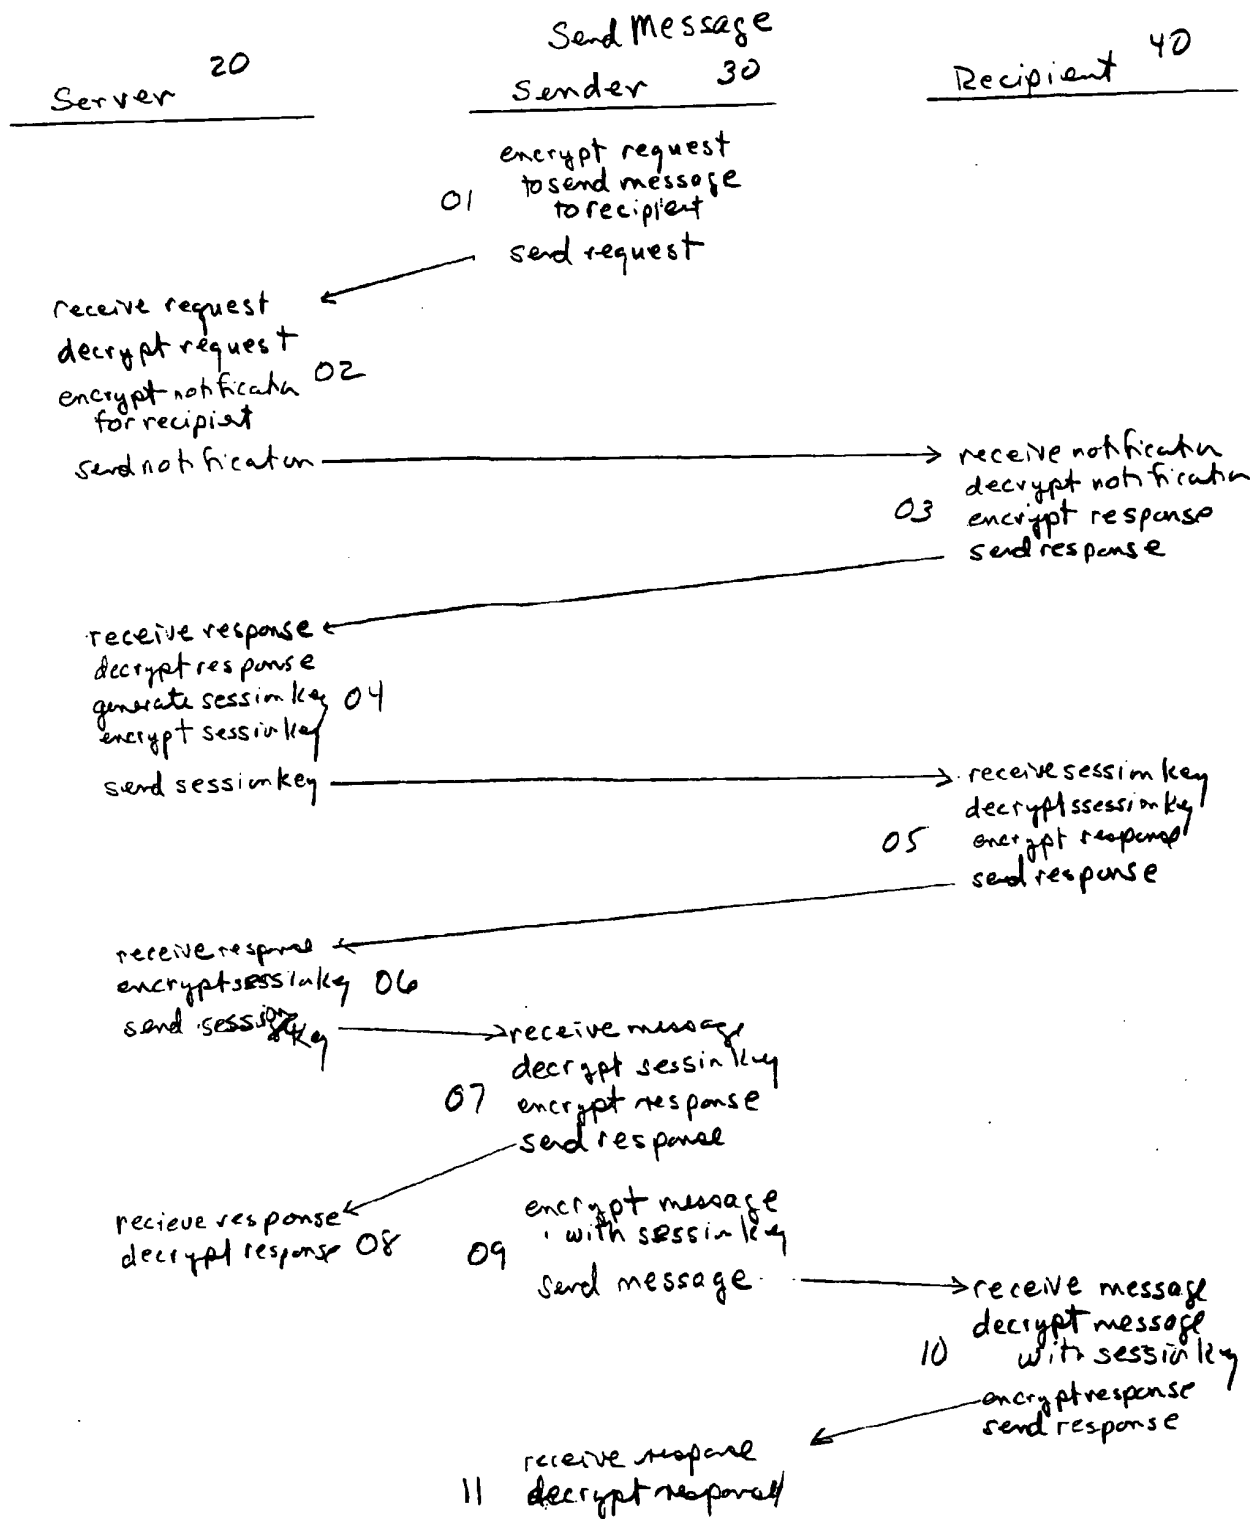 Send Message
Server 20
Sender 30
Recipient 40
encrypt request
to send message
01
to recipient
send request
receive request
decrypt request
02
encrypt notification
for recipient
send notification
receive notification
decrypt notification
03
encrypt response
send response
receive response
decrypt response
generate session key 04
encrypt session key
send session key
receive session key
decrypt ssession key
05
encrypt response
send response
receive response
encrypt session key 06
send session key
receive message
decrypt session key
07 encrypt response
send response
recieve response
decrypt response 08
encrypt message
with session key
09
send message
receive message
decrypt message
10 with session key
encrypt response
send response
receive response
11 decrypt response